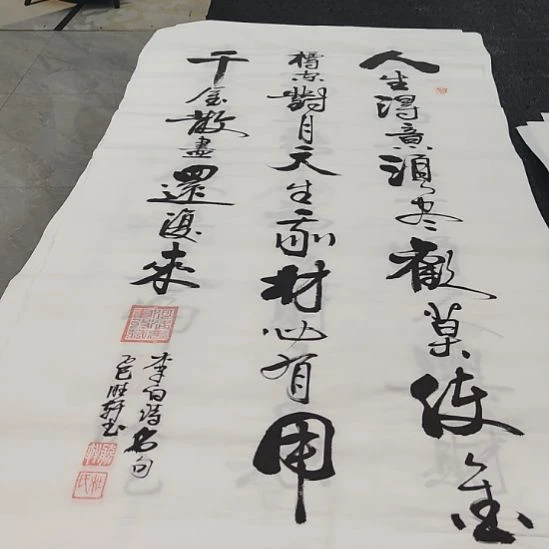 人生得意須尽歡莫使金
樽空對月天生我材必有用
千金散盡還復來
李白詩名句
胜軒书